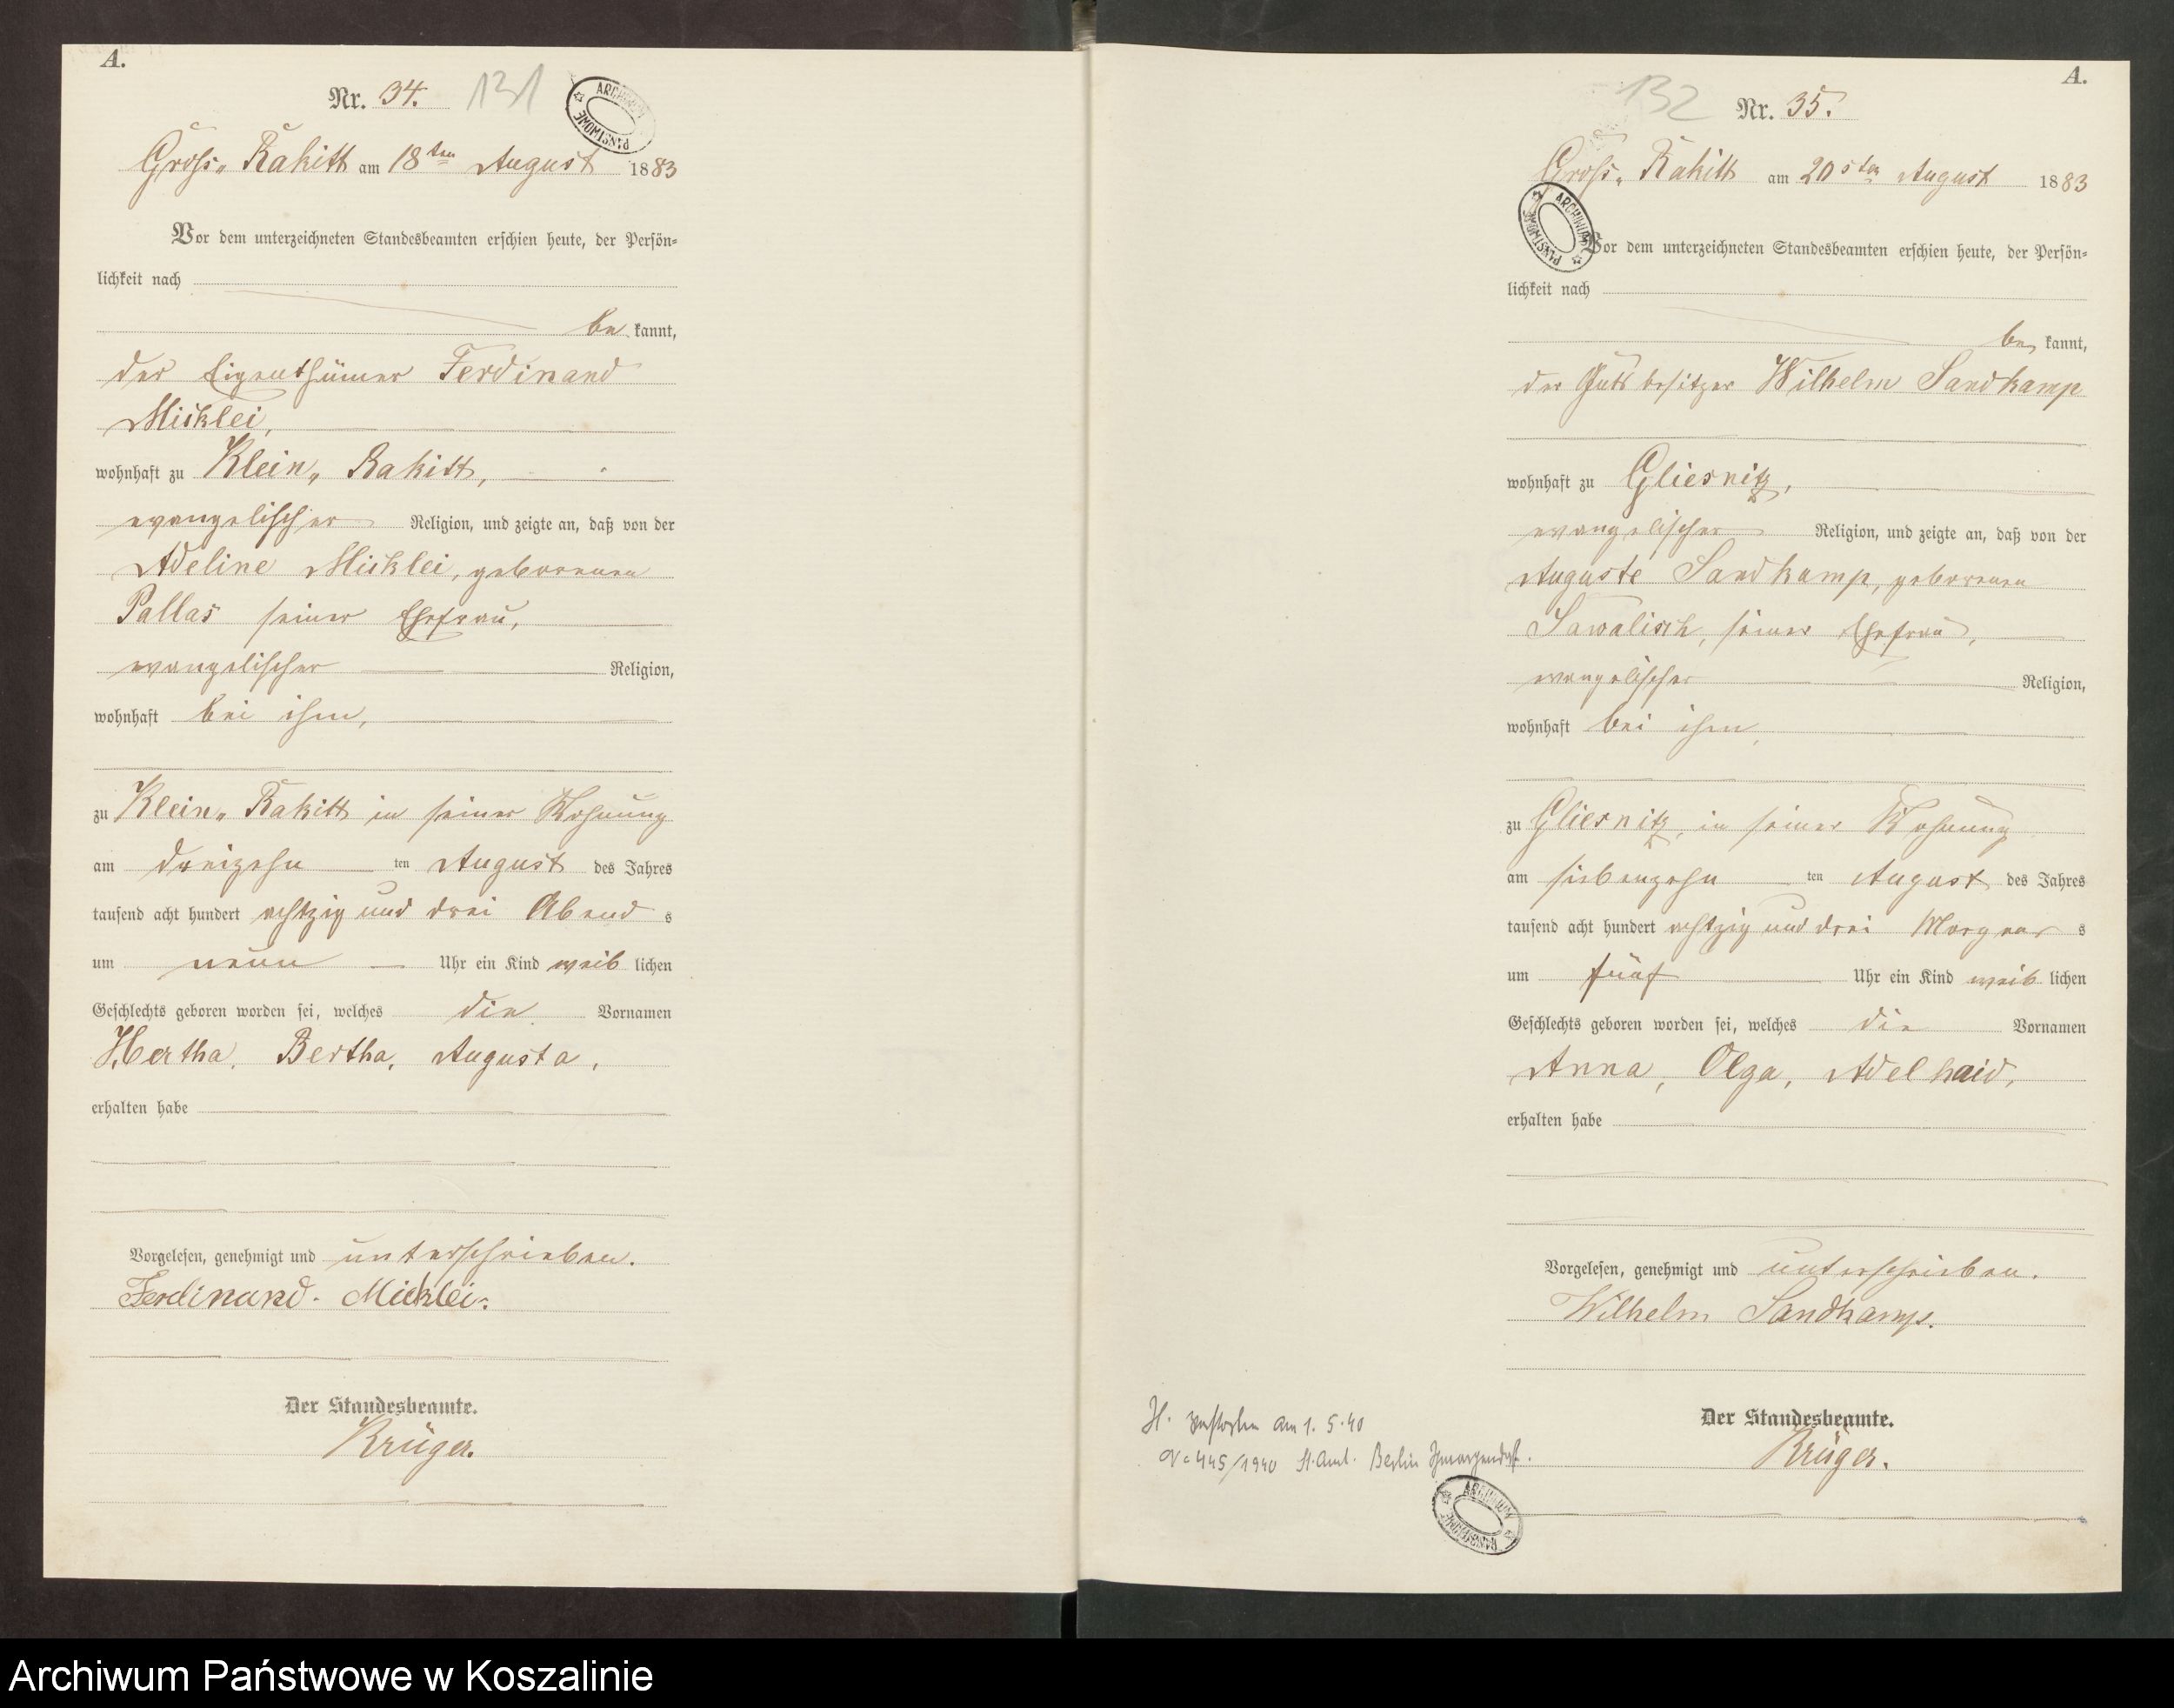 A.
Nr. 34. 131
ARCHIWUM PAŃSTWOWE
Gross„ Rakitt am 18ten August 1883
Vor dem unterzeichneten Standesbeamten erschien heute, der Persön-
lichkeit nach
be kannt,
der Eigenthümer Ferdinand
Micklei,
wohnhaft zu Klein„ Rakitt,
evangelischer Religion, und zeigte an, daß von der
Adeline Micklei, geborenen
Pallas seiner Ehefrau,
evangelischer Religion,
wohnhaft bei ihm,
zu Klein„ Rakitt in seiner Wohnung
am dreizehn ten August des Jahres
tausend acht hundert achtzig und drei Abend s
um neun Uhr ein Kind weib lichen
Geschlechts geboren worden sei, welches die Vornamen
Hertha, Bertha, Augusta,
erhalten habe
Vorgelesen, genehmigt und unterschrieben.
Ferdinand Micklei.
Der Standesbeamte.
Krüger.
A.
132 Nr. 35.
Gross„ Rakitt am 20sten August 1883
ARCHIWUM PAŃSTWOWE
Vor dem unterzeichneten Standesbeamten erschien heute, der Persön-
lichkeit nach
be kannt,
der Gutsbesitzer Wilhelm Sandkamp
wohnhaft zu Gliesnitz,
evangelischer Religion, und zeigte an, daß von der
Auguste Sandkamp, geborenen
Sawalisch, seiner Ehefrau,
evangelischer Religion,
wohnhaft bei ihm,
zu Gliesnitz, in seiner Wohnung
am siebenzehn ten August des Jahres
tausend acht hundert achtzig und drei Morgens s
um fünf Uhr ein Kind weib lichen
Geschlechts geboren worden sei, welches die Vornamen
Anna, Olga, Adelhaid,
erhalten habe
Vorgelesen, genehmigt und unterschrieben.
Wilhelm Sandkamp.
Der Standesbeamte.
Krüger.
H. verstorben am 1. 5. 40
N= 445/1940 St. Amt. Berlin Schmargendorf.
ARCHIWUM PAŃSTWOWE
Archiwum Państwowe w Koszalinie